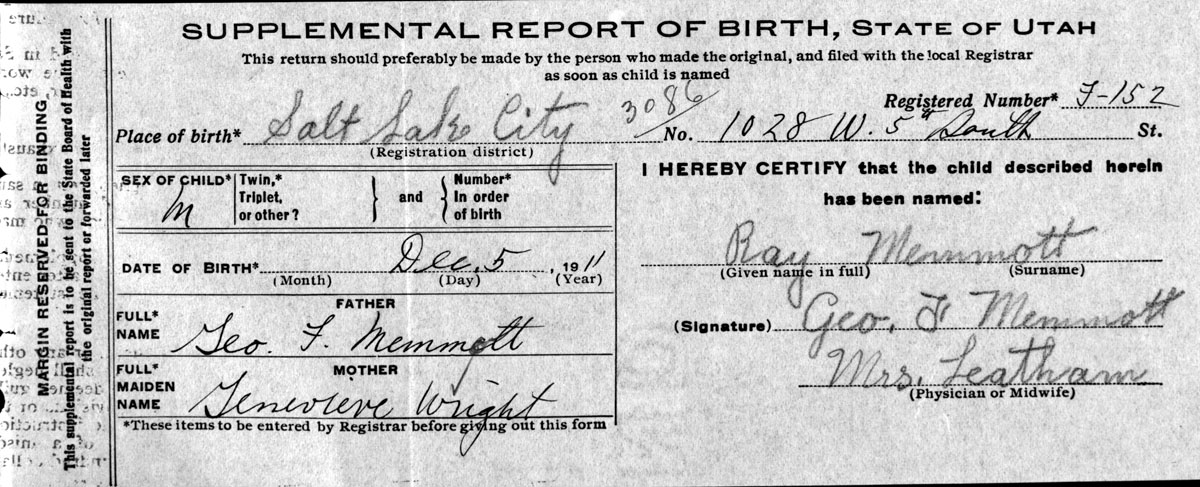 SUPPLEMENTAL REPORT OF BIRTH, STATE OF UTAH
This return should preferably be made by the person who made the original, and filed with the local Registrar
as soon as child is named
3086
Registered Number* F-152
Place of birth* Salt Lake City No. 1028 W. 5th South St.
(Registration district)
SEX OF CHILD* M
Twin,*
Triplet,
or other?
and
Number*
In order
of birth
DATE OF BIRTH* Dec. 5, 1911
(Month) (Day) (Year)
FATHER
FULL*
NAME Geo. F. Memmott
MOTHER
FULL*
MAIDEN
NAME Genevieve Wright
*These items to be entered by Registrar before giving out this form
I HEREBY CERTIFY that the child described herein
has been named:
Ray Memmott
(Given name in full) (Surname)
(Signature) Geo. F. Memmott
Mrs. Leatham
(Physician or Midwife)
MARGIN RESERVED FOR BINDING
This supplemental report is to be sent to the State Board of Health with
the original report or forwarded later